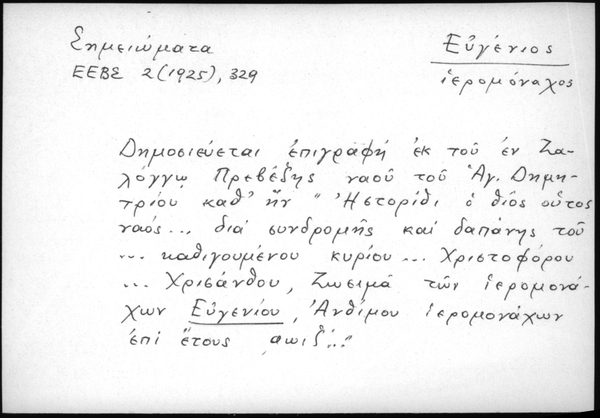 Σημειώματα
ΕΕΒΣ 2 (1925), 329
Εὐγένιος
ἱερομόναχος
Δημοσιεύεται ἐπιγραφή ἐκ τοῦ ἐν Ζα-
λόγγῳ Πρεβέζης ναοῦ τοῦ Ἁγ. Δημη-
τρίου καθ' ἥν "Ἡστορίθι ὁ θῖος οὗτος
ναός... διά συνδρομῆς καί δαπάνης τοῦ
... καθιγουμένου κυρίου ... Χριστοφόρου
... Χρισάνθου, Ζωσιμᾶ τῶν ἱερομονά-
χων Εὐγενίου, Ἀνθίμου ἱερομονάχων
ἐπί ἔτους